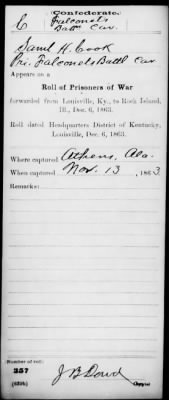 Confederate.
C Falconels Batt. Cav.
Saml H. Cook
Pri. Falconels Battl Cav
Appears on a
Roll of Prisoners of War
forwarded from Louisville, Ky., to Rock Island,
Ill., Dec. 6, 1863.
Roll dated Headquarters District of Kentucky,
Louisville, Dec. 6, 1863.
Where captured Athens, Ala.
When captured Nov. 13, 1863
Remarks:
Number of roll:
357
J B Dowd
Copyist.